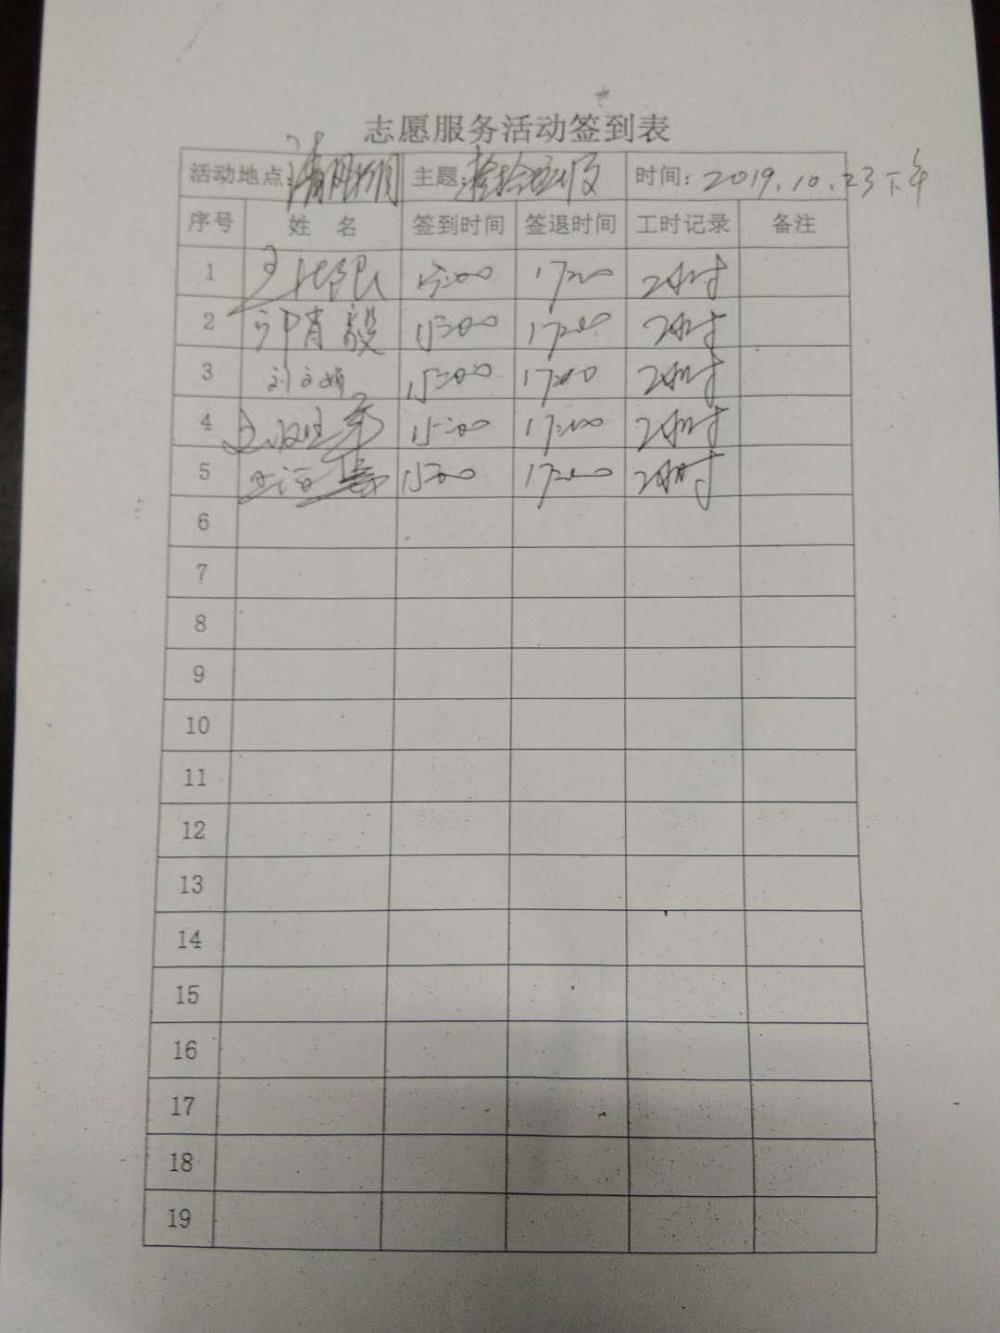 志愿服务活动签到表
活动地点: 主题: 捡拾垃圾 时间: 2019.10.23下午
序号 姓 名 签到时间 签退时间 工时记录 备注
1 15:00 17:00 2小时
2 15:00 17:00 2小时
3 刘文娟 15:00 17:00 2小时
4 15:00 17:00 2小时
5 15:00 17:00 2小时
6
7
8
9
10
11
12
13
14
15
16
17
18
19